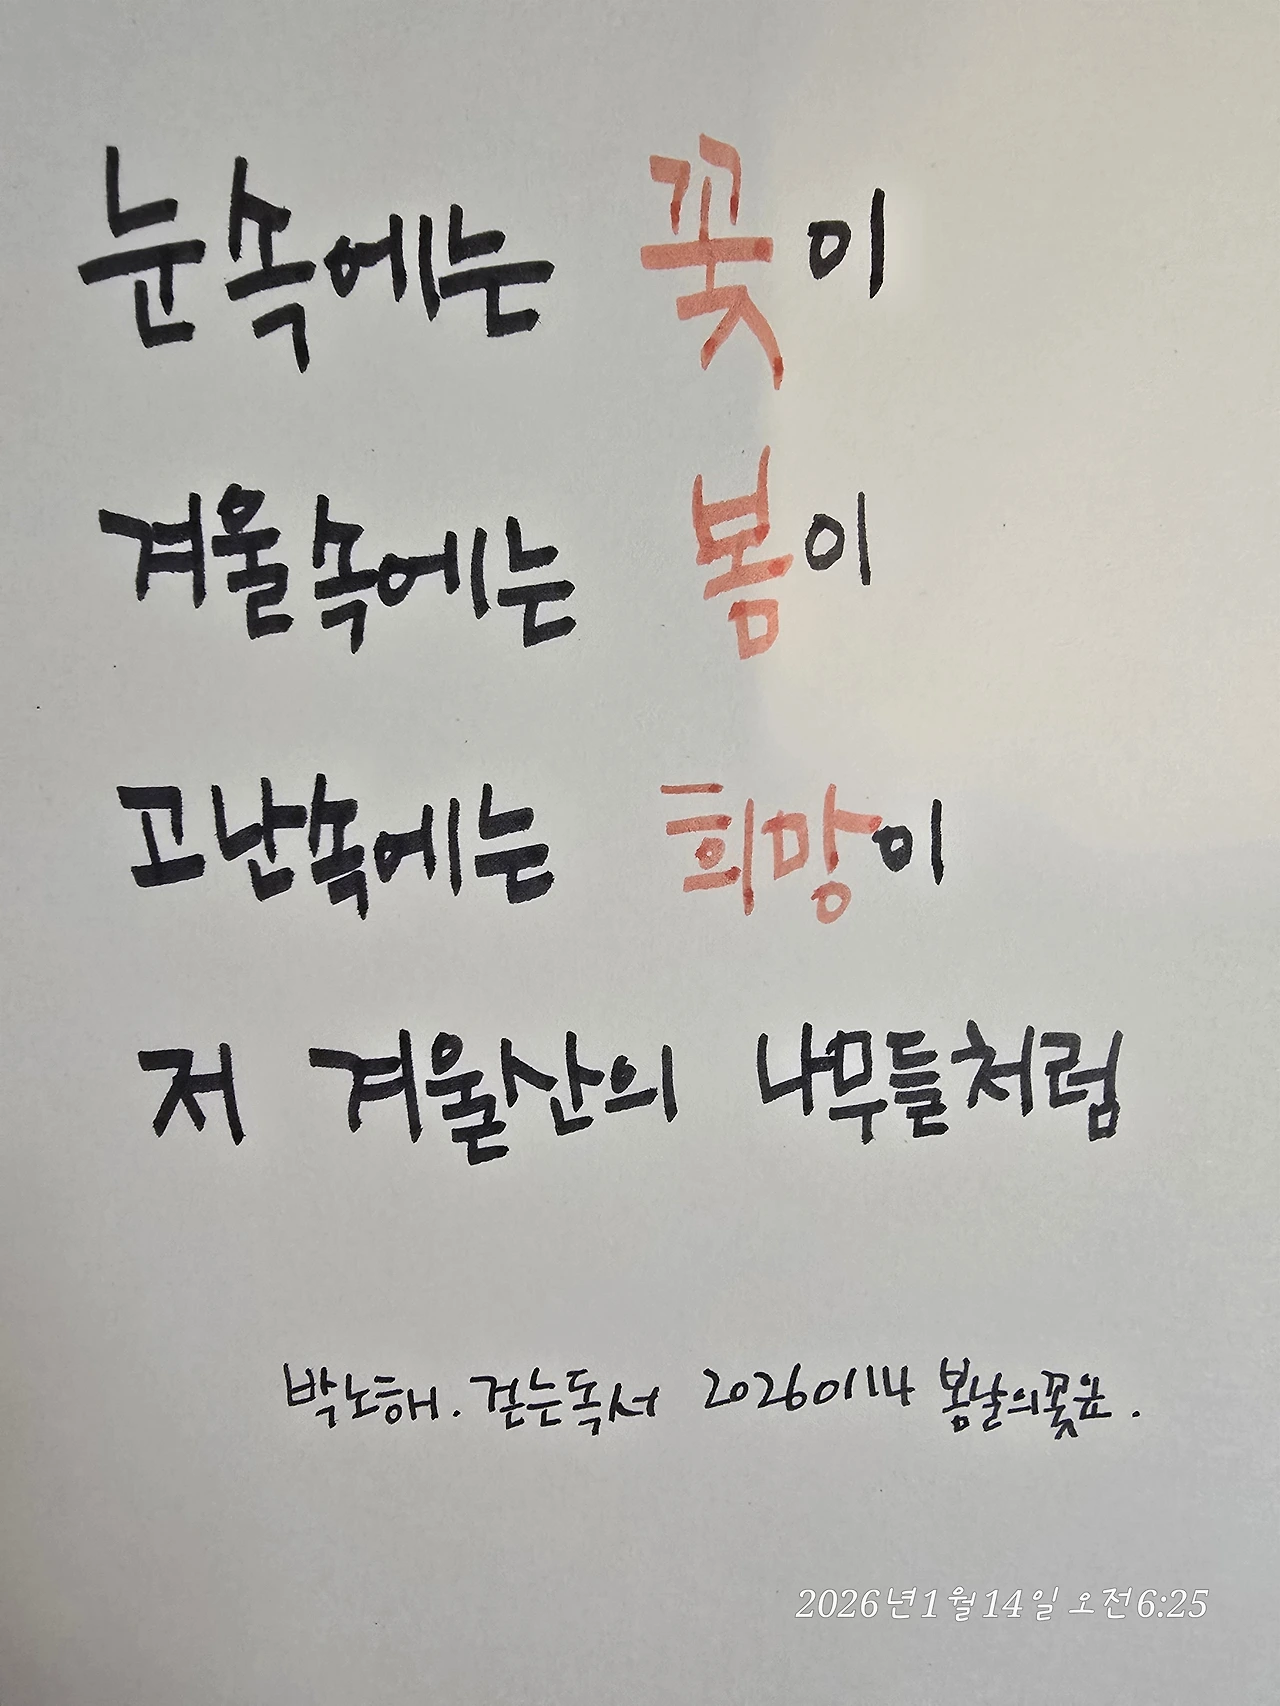 눈속에는 꽃이
겨울속에는 봄이
고난속에는 희망이
저 겨울산의 나무들처럼
박노해. 걷는독서 20260114 봄날의꽃윤.
2026년 1월 14일 오전 6:25